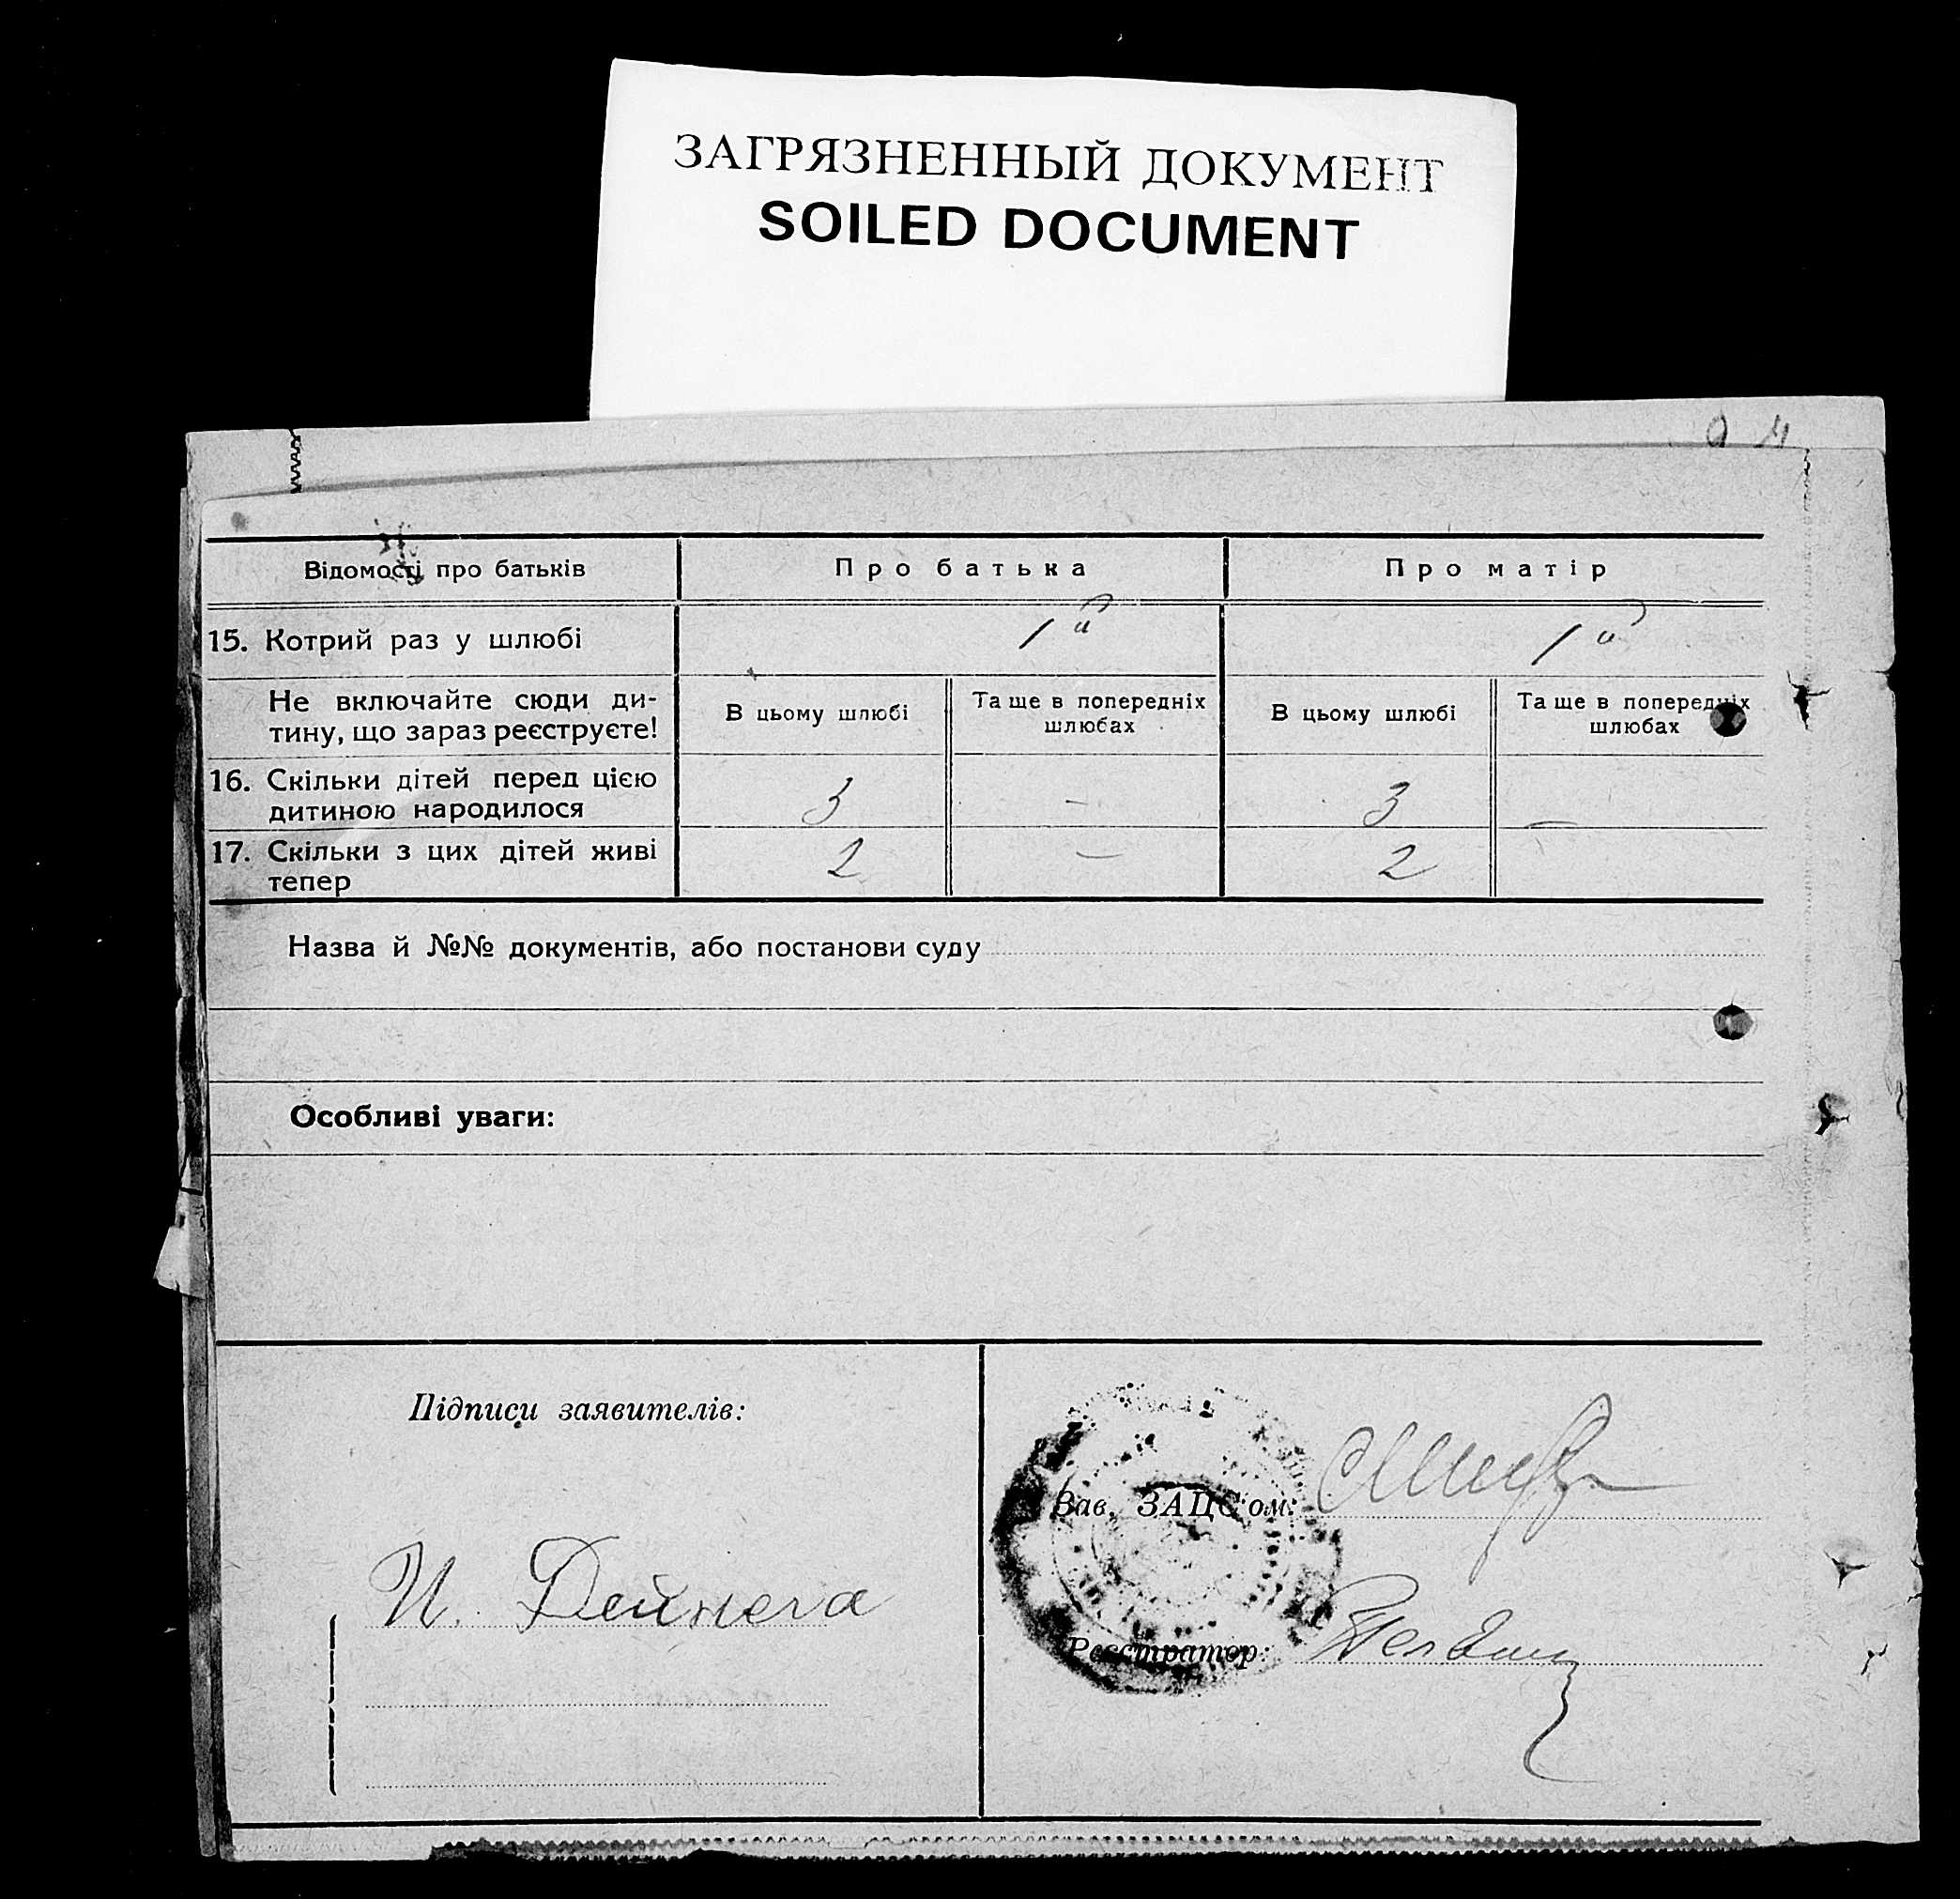 ЗАГРЯЗНЕННЫЙ ДОКУМЕНТ
SOILED DOCUMENT
Відомості про батьків
Про батька
Про матір
15. Котрий раз у шлюбі
1й
1й
Не включайте сюди ди-
тину, що зараз реєструєте!
В цьому шлюбі
Та ще в попередніх
шлюбах
В цьому шлюбі
Та ще в попередніх
шлюбах
16. Скільки дітей перед цією
дитиною народилося
3
—
3
—
17. Скільки з цих дітей живі
тепер
2
—
2
Назва й №№ документів, або постанови суду
Особливі уваги:
Підписи заявителів:
И. Дейнега
Зав. ЗАЦС'ом:
Реєстратор: